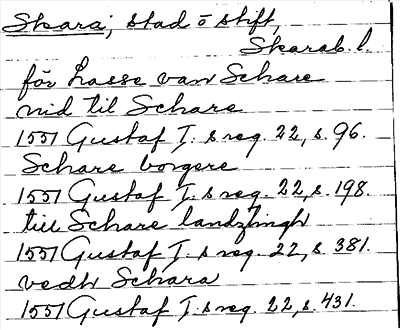 Skara, stad o stift,
Skarab. l.
för Lasse van Schare
nid til Schare
1551 Gustaf I:s reg. 22, s. 96.
Schare borgere
1551 Gustaf I:s reg. 22, s. 198.
till Schare landztingh
1551 Gustaf I:s reg. 22, s. 381.
vedh Schara
1551 Gustaf I:s reg. 22, s. 431.